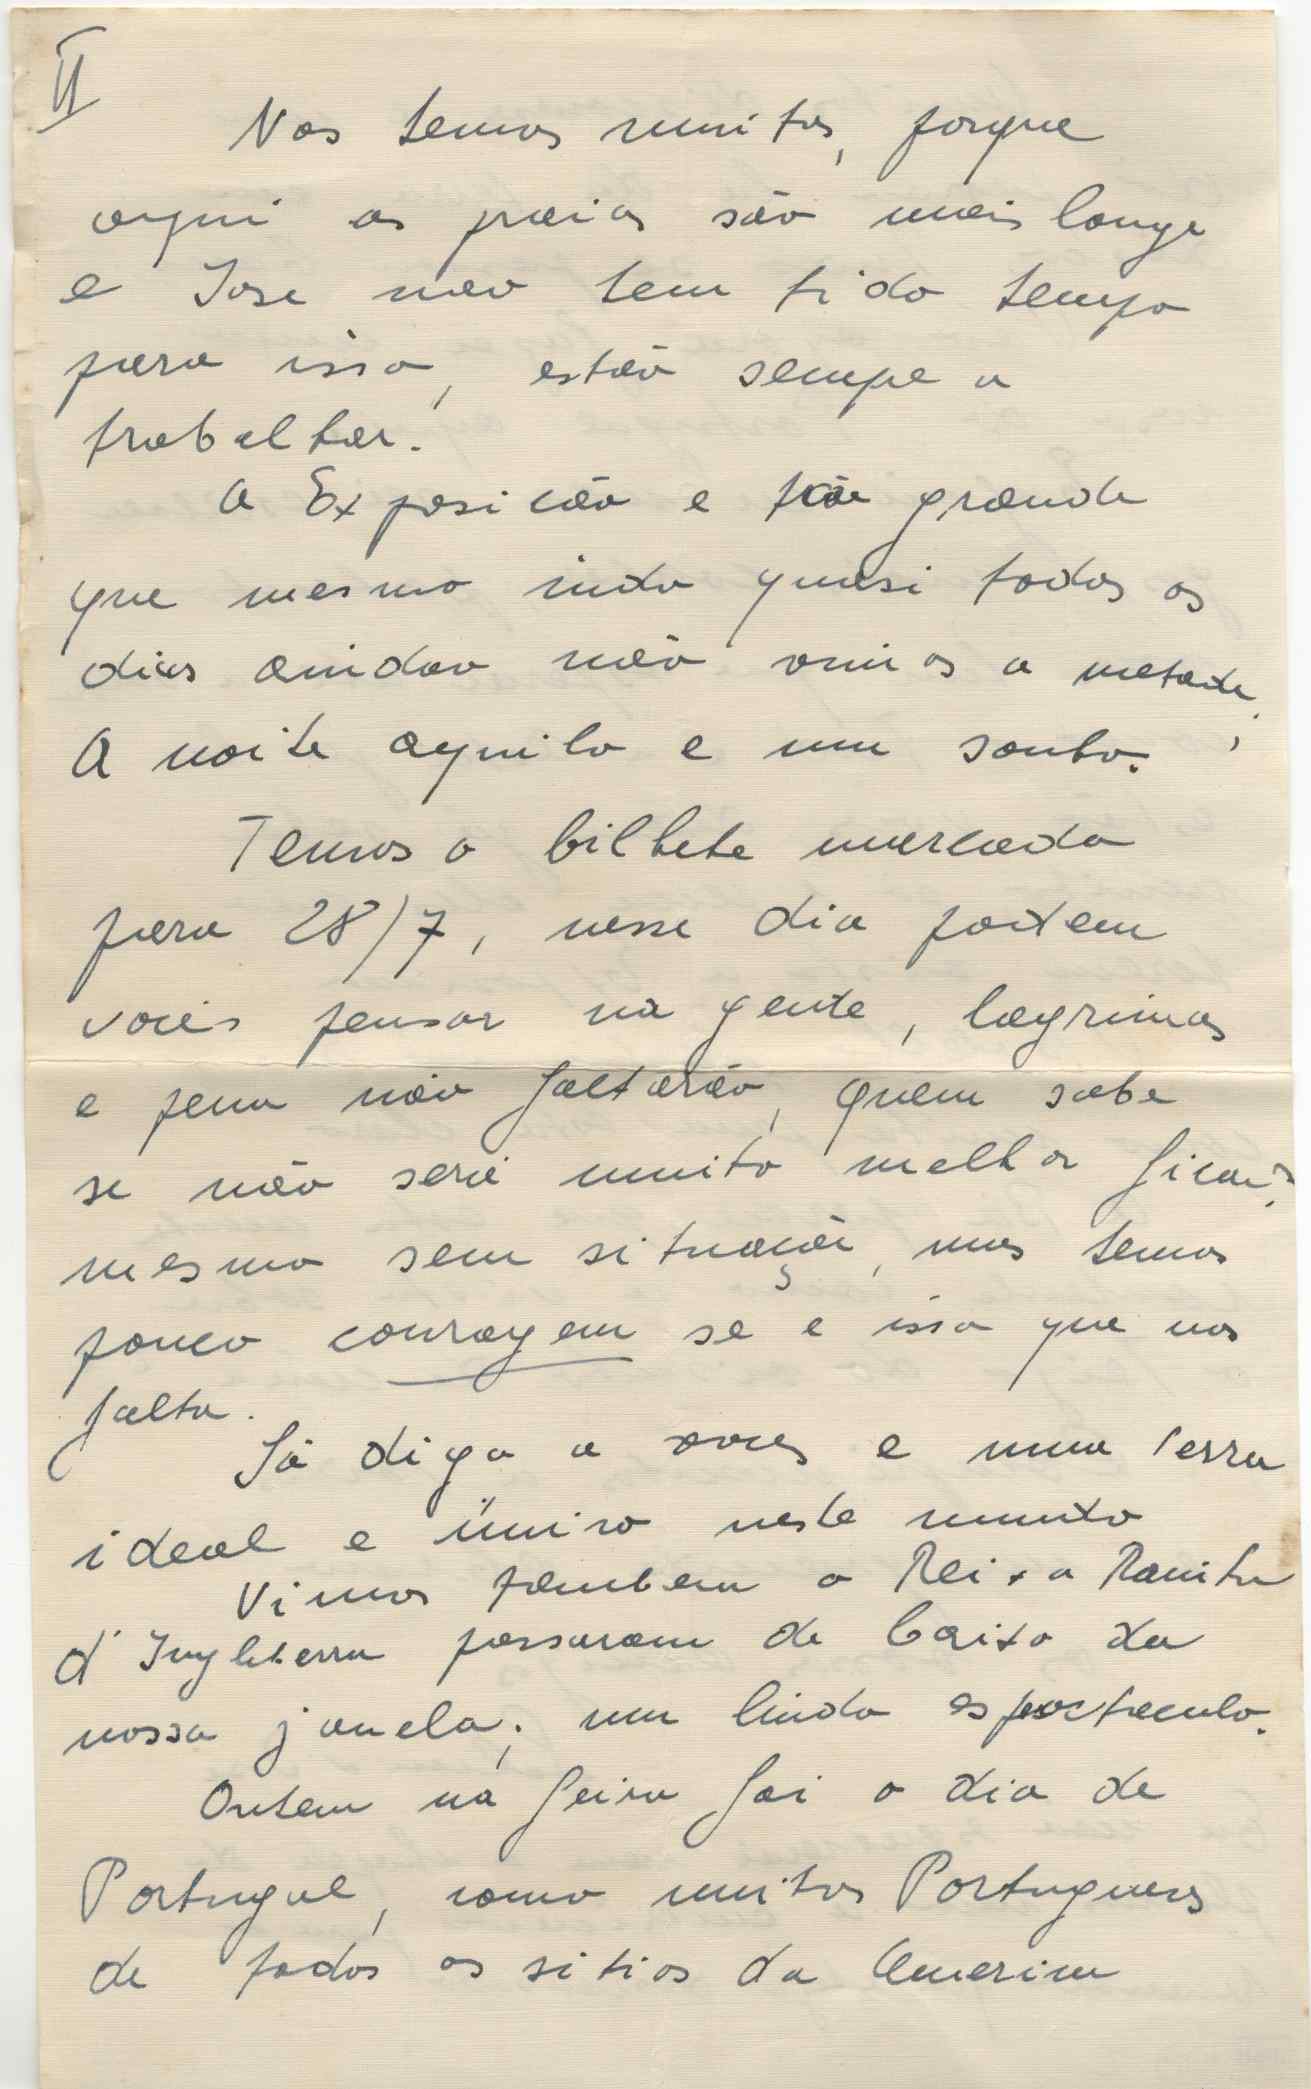 II
Nos temos muitos, porque
aqui as praias são mais longe
e Jose nao tem tido tempo
para isso, estão sempre a
trabalhar.
A Exposicão e tão grande
que mesmo indo quasi todos os
dias aindav não vimos a metade,
A noite aquilo e um sonho.
Temos o bilhete marcado
para 28/7, nesse dia podem
voces pensar na gente, lagrimas
e pena não faltarão, quem sabe
se não seria muito melhor ficar?
mesmo sem situação, mas temos
pouco couragem se e isso que nos
falta.
Já digo a voces e uma terra
ideal e único neste mundo
Vimos tambem o Rei + a Rainha
d'Inglaterra passaram de baixo da
nossa janela; um lindo espectaculo.
Ontem na feira foi o dia de
Portugal, como muitos Portugueses
de todos os sitios da America